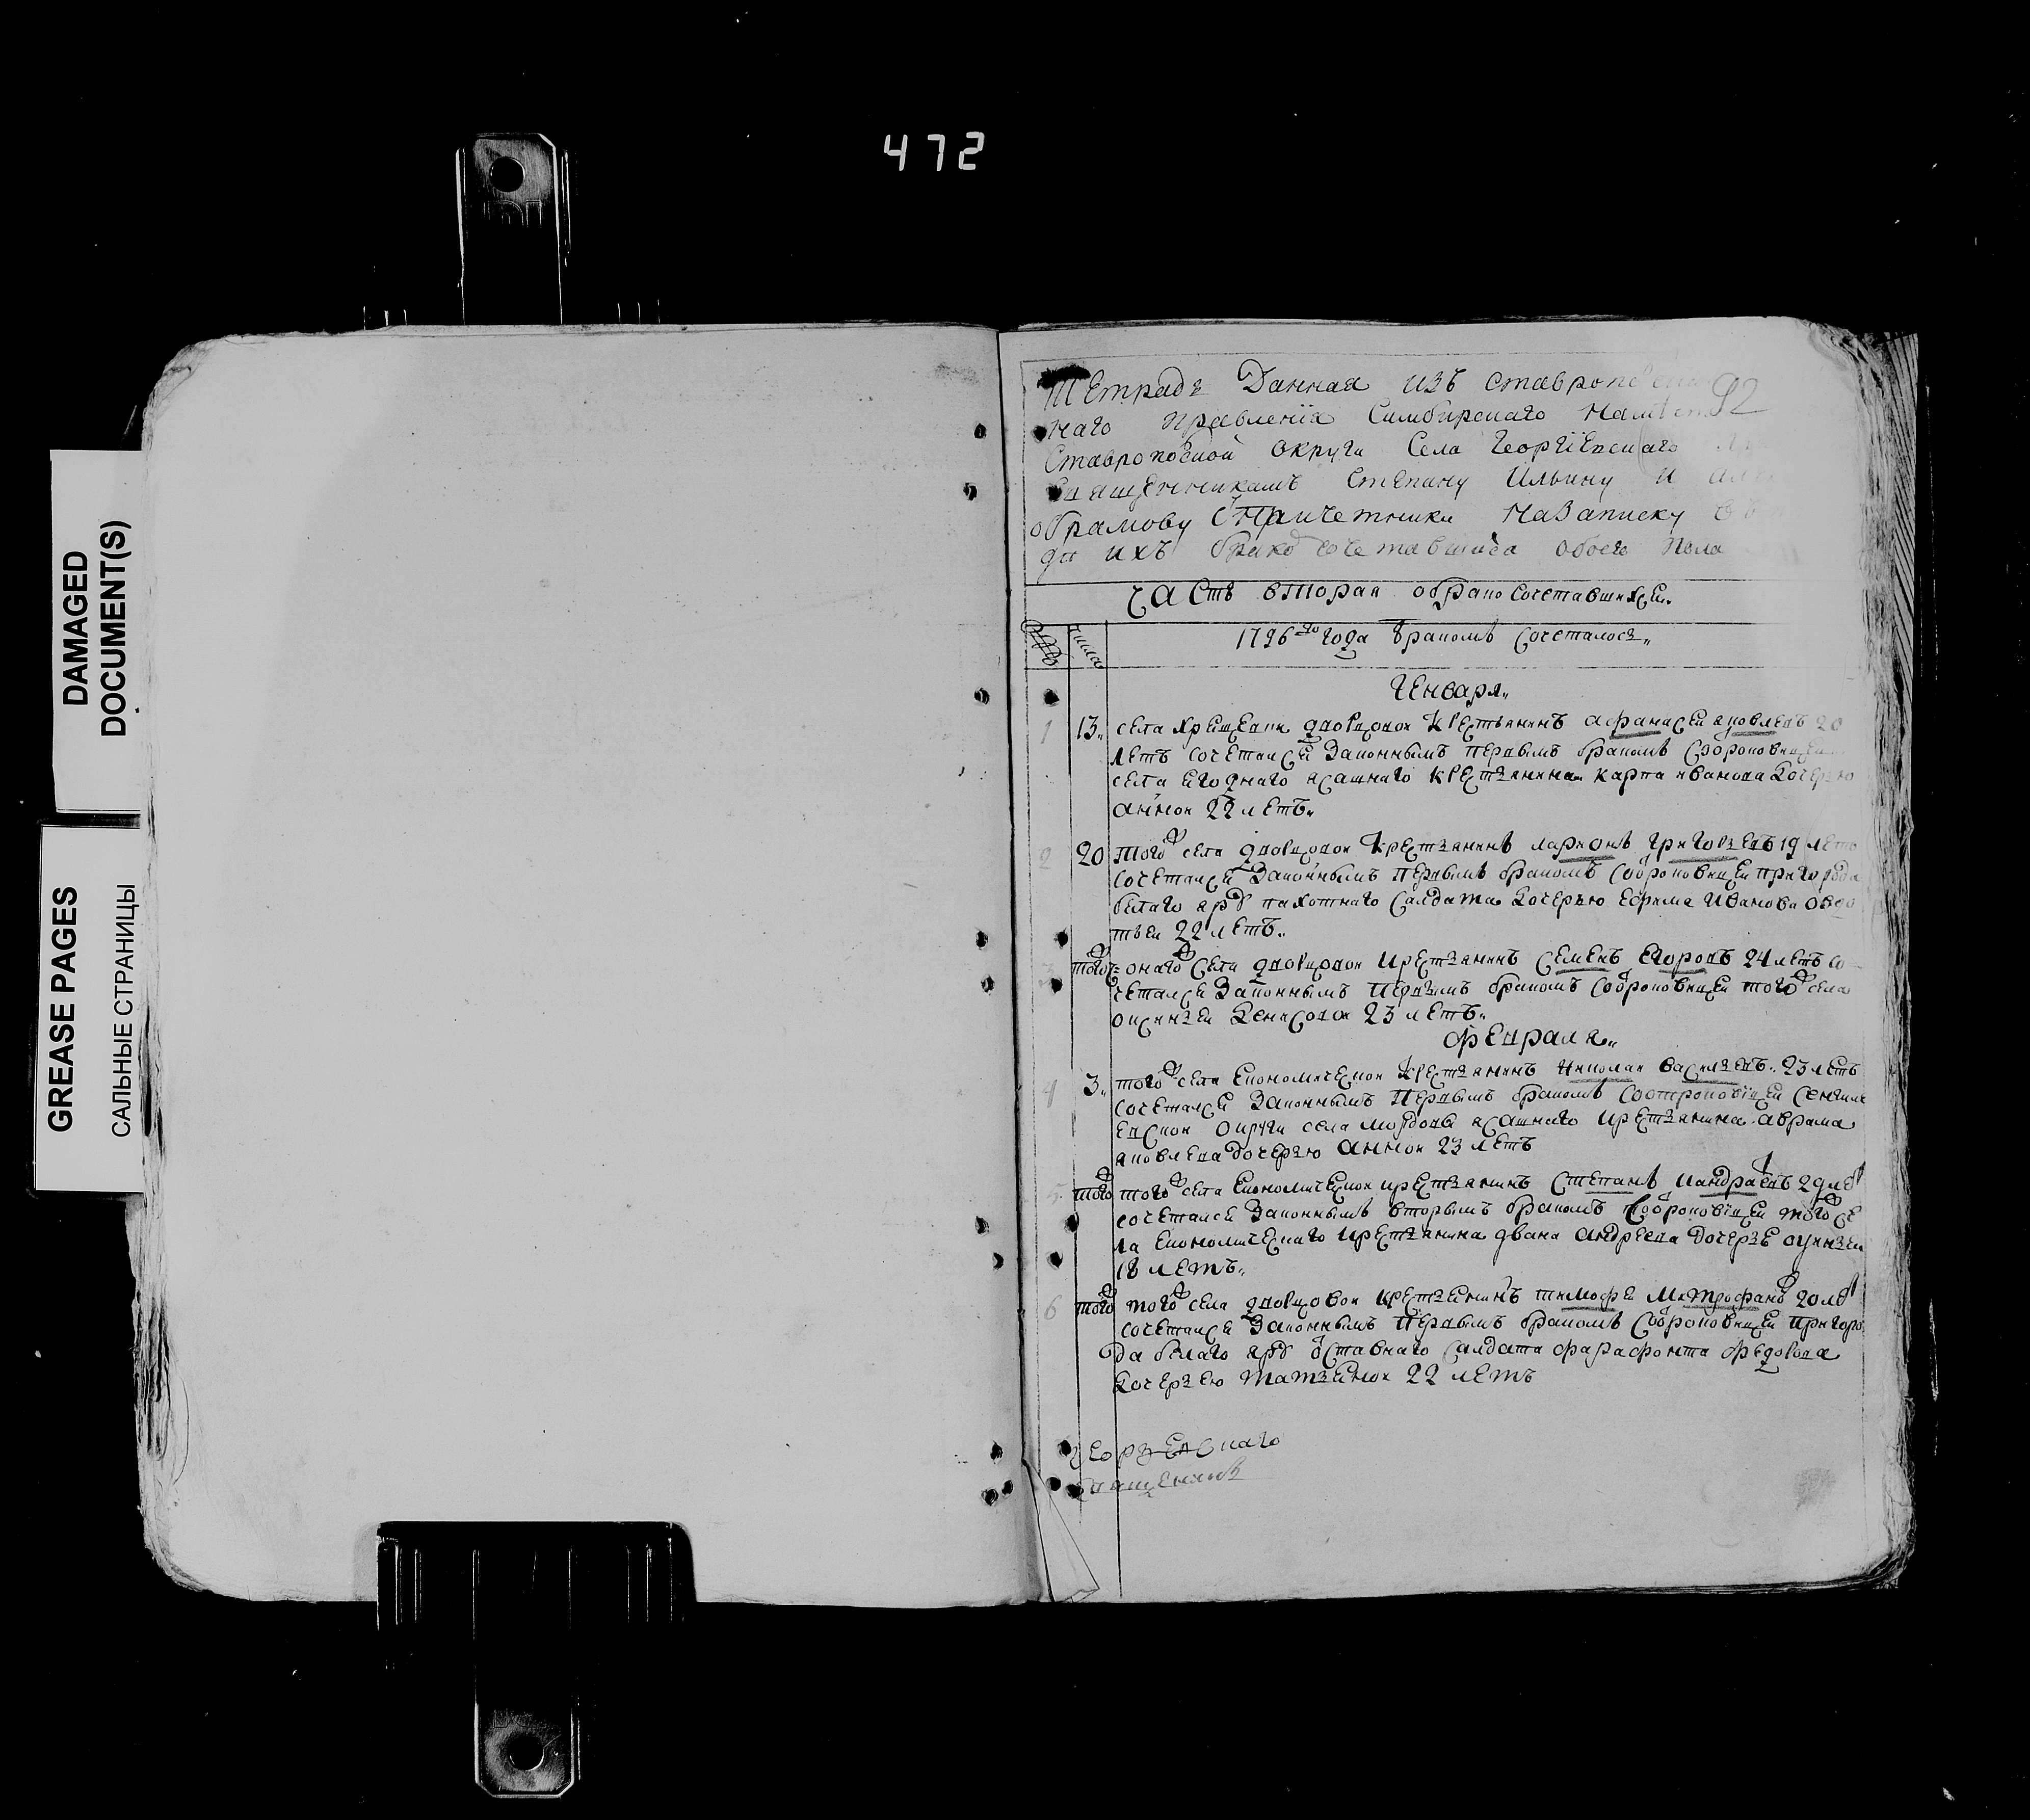 472
DAMAGED
DOCUMENT(S)
GREASE PAGES
САЛЬНЫЕ СТРАНИЦЫ
92
Тетрадь Данная изъ ставропо
наго правленїя Симбирскаго
Ставропо округи Села Георгїевскаго
священникамъ Степану Ильину и
абрамову Спричетники Назаписку
ихъ брако сочетавшихся обоего пола
часть вторая обрако сочетавшихся
числа
1796го года бракомъ Сочеталось
Генваря
1 13 села хрящевки дворцовои крестьянинъ афанасеи яковлевъ 20
летъ сочетался законнымъ первымъ бракомъ
села ягоднаго ясашнаго крестьянина карпа иванова дочерью
анной 22 летъ
2 20 тогож села дворцовои крестьянинъ ларионъ григорьевъ 19 летъ
сочетался законнымъ первымъ бракомъ пригорода
белаго яру пахотнаго салдата дочерью ефрима иванова овдо
тьеи 22 летъ
тогож онагож села дворцовои крестьянинъ семенъ егоровъ 24 летъ со
четался законнымъ первымъ бракомъ тогож села
денисовои 23 летъ
февраля
4 3 тогож села економическои крестьянинъ николаи васильевъ 23 летъ
сочетался законнымъ первымъ бракомъ сенгиле
евскои округи села мордовы ясашнаго крестьянина аврама
яковлева дочерью анной 23 летъ
5 тогож тогож села економическои крестьянинъ степанъ 29 ле
сочетался законнымъ вторымъ бракомъ тогож се
ла економическаго крестьянина андреева дочерью
18 летъ
6 тогож тогож села дворцовои крестьянинъ тимофеи митрофано 20 ле
сочетался законнымъ первымъ бракомъ пригоро
да белаго яру оставнаго салдата фарафонта федорова
дочерью татьяной 22 летъ
георьевскаго
священникъ